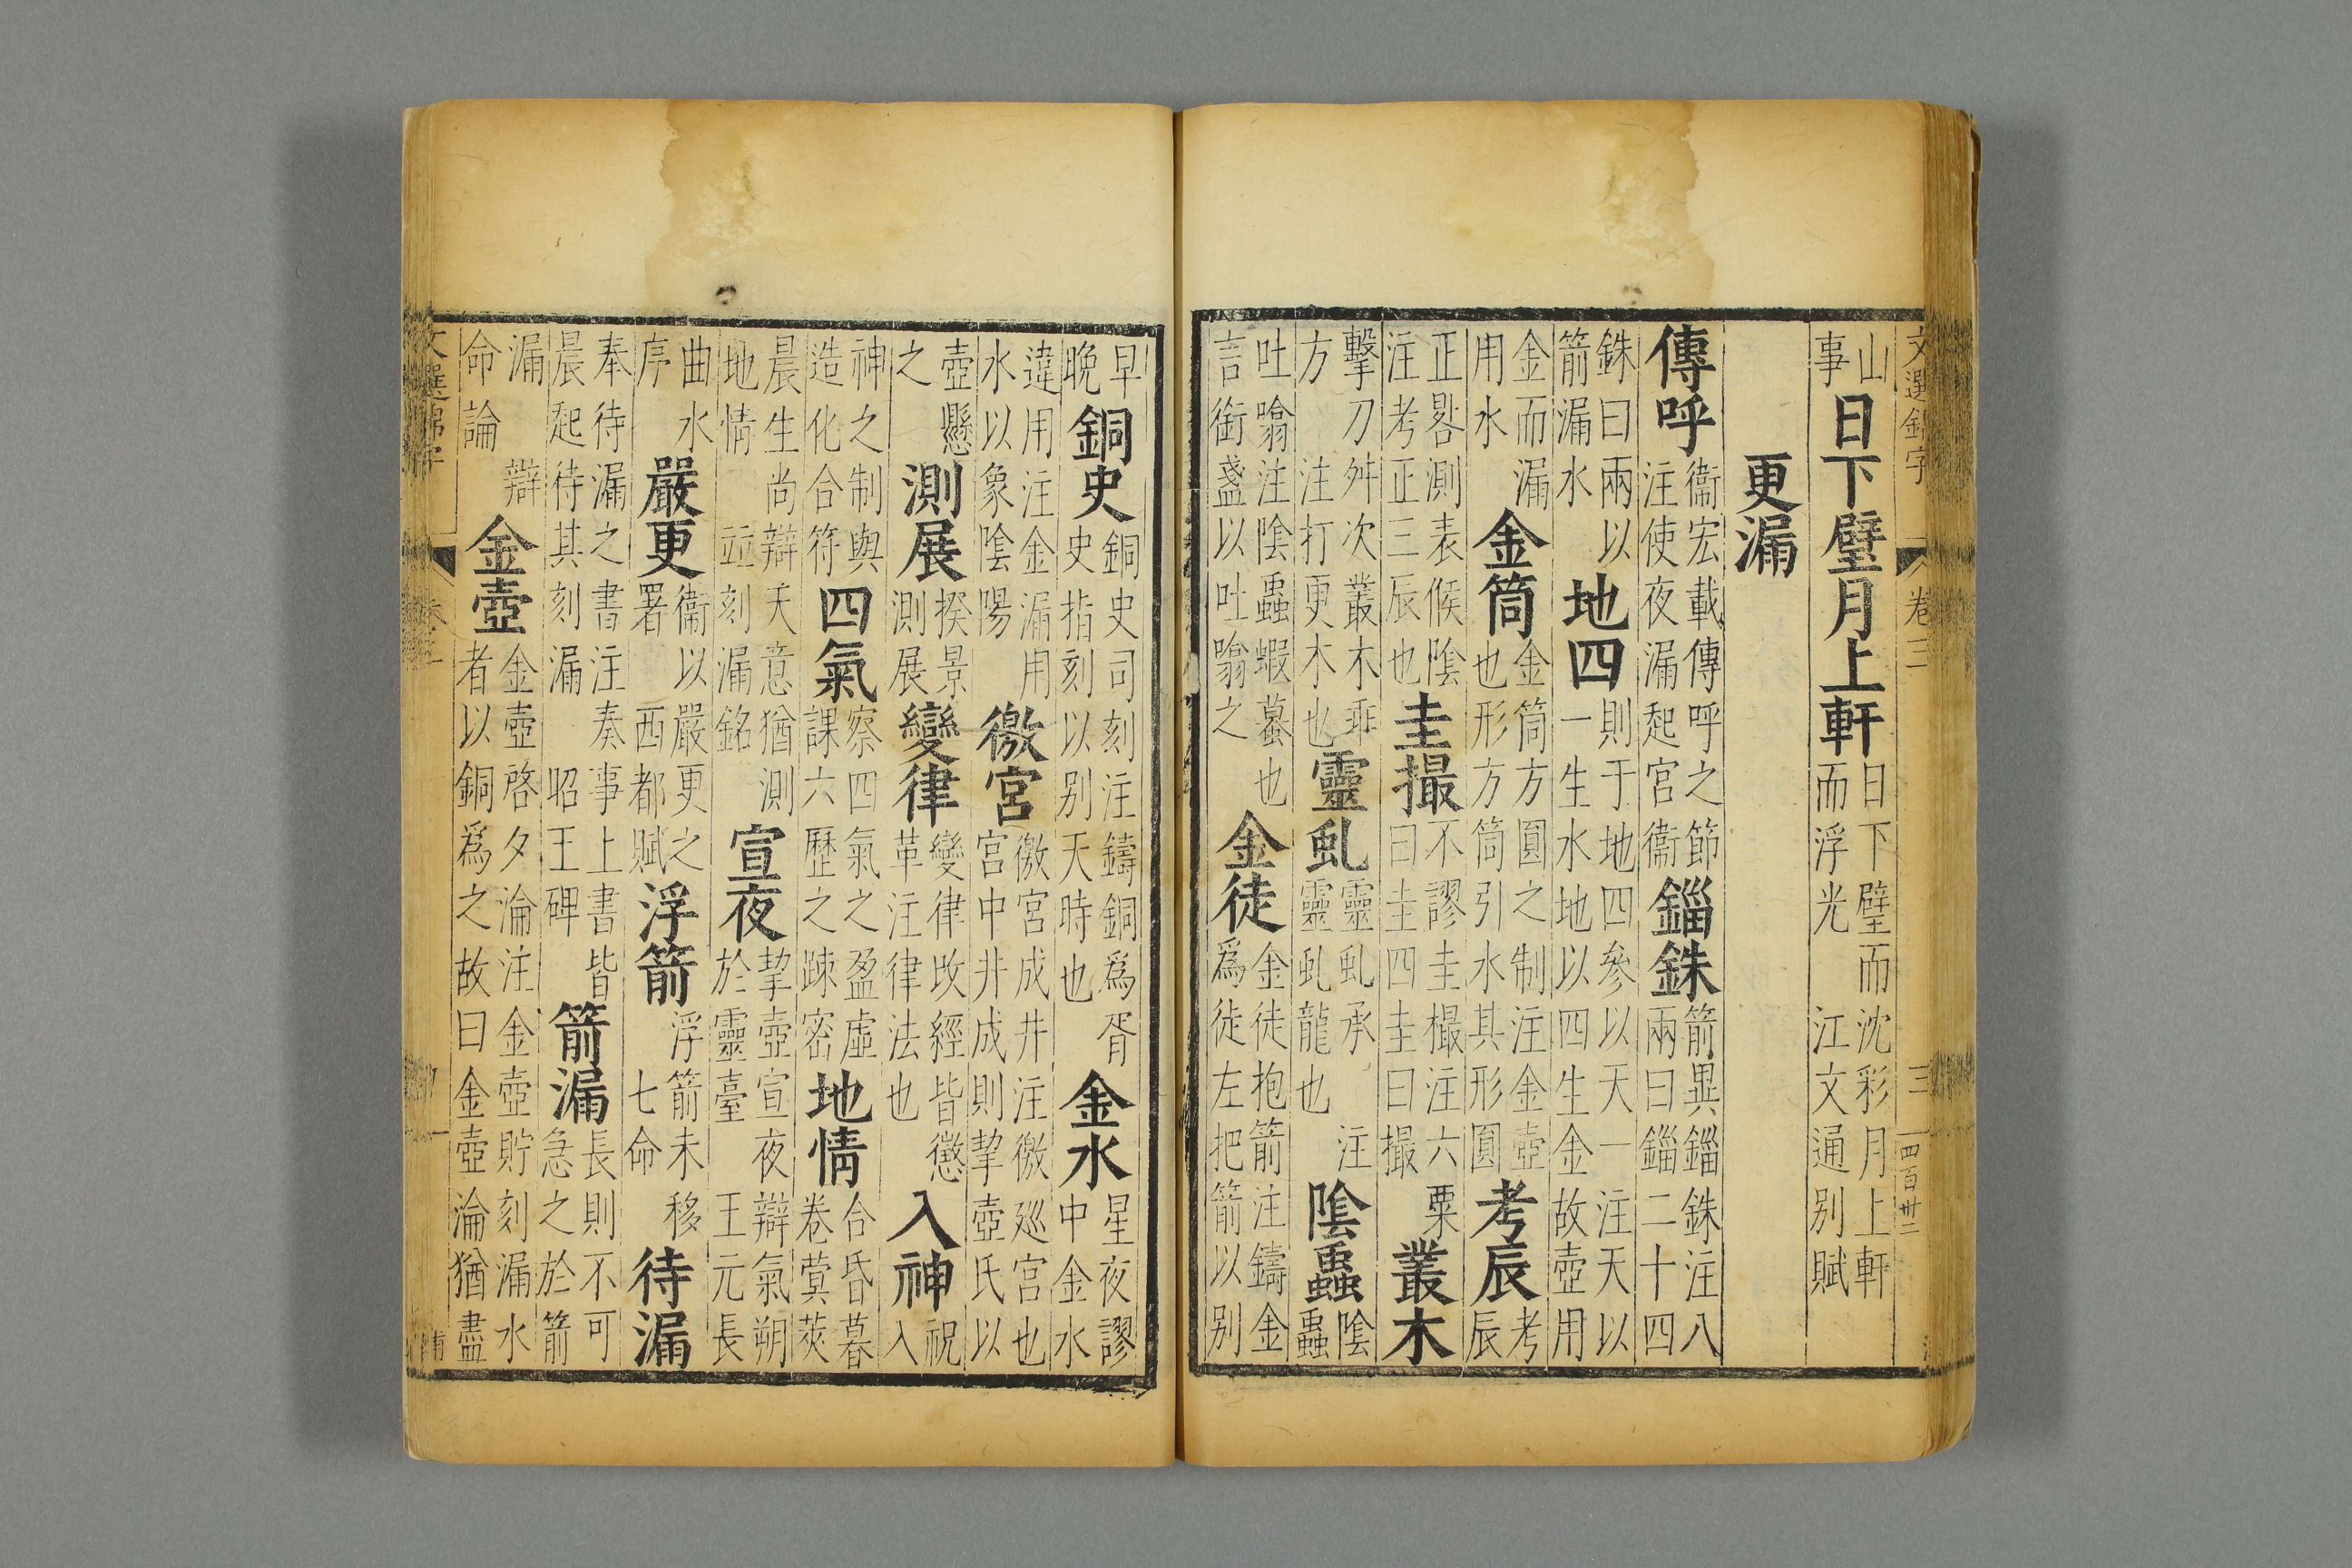 文選錦字 卷三 三 四百卅二
山事日下璧月上軒日下璧而沈彩月上軒而浮光 江文通别賦
更漏
傳呼衞宏載傳呼之節注使夜漏起宮衞錙銖箭異錙銖注八兩曰錙二十四
銖曰兩以箭漏水地四則于地四參以天一注天以一生水地以四生金故壺用
金而漏用水金筒金筒方圓之制注金壺也形方筒引水其形圓考辰考辰
正晷測表候陰注考正三辰也圭撮不謬圭撮注六粟曰圭四圭曰撮叢木
擊刀舛次叢木乖方 注打更木也靈虬靈虬承注靈虬龍也陰蟲陰蟲
吐噏注陰蟲蝦蟇也言銜盞以吐噏之金徒金徒抱箭注鑄金爲徒左把箭以别
早晚銅史銅史司刻注鑄銅爲胥史指刻以别天時也金水星夜謬中金水
違用注金漏用水以象陰陽徼宮徼宮成井注徼廵宮也宮中井成則挈壺氏以
壺懸之測展揆景測展變律變律改經皆懲革注律法也入神祝入
神之制與造化合符四氣察四氣之盈虛課六歷之踈密地情合昏暮卷蓂莢
晨生尚辯天意猶測地情 並刻漏銘宣夜挈壺宣夜辯氣朔於靈臺 王元長
曲水序嚴更衞以嚴更之署 西都賦浮箭浮箭未移 七命待漏
奉待漏之書注奏事上書皆晨起待其刻漏 昭王碑箭漏長則不可急之於箭
漏 辯命論金壺金壺啓夕淪注金壺貯刻漏水者以銅爲之故曰金壺淪猶盡